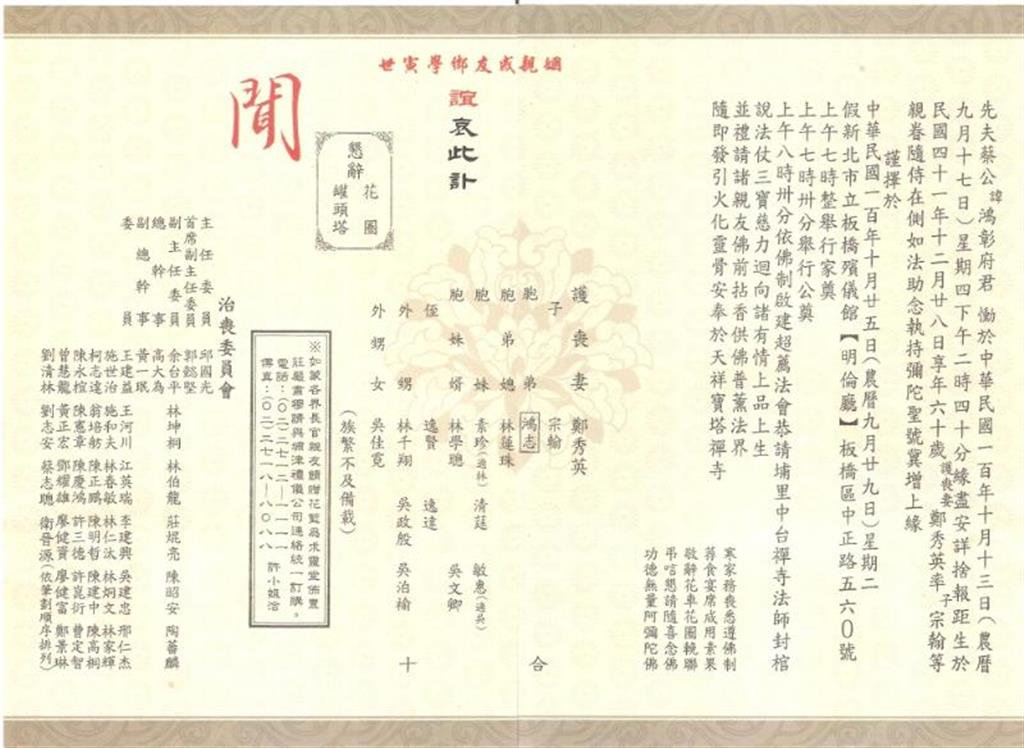 先夫蔡公諱鴻彰府君 慟於中華民國一百年十月十三日(農曆
九月十七日)星期四下午二時四十分緣盡安詳捨報距生於
民國四十一年十二月廿八日享年六十歲護喪妻鄭秀英率子宗翰等
親眷隨侍在側如法助念執持彌陀聖號冀增上緣
謹擇於
中華民國一百年十月廿五日(農曆九月廿九日)星期二
假新北市立板橋殯儀館【明倫廳】板橋區中正路五六0號
上午七時整舉行家奠
上午七時卅分舉行公奠
上午八時卅分依佛制啟建超薦法會恭請埔里中台禪寺法師封棺
說法仗三寶慈力迴向諸有情上品上生
並禮請諸親友佛前拈香供佛普薰法界
隨即發引火化靈骨安奉於天祥寶塔禪寺
寒家務喪悉遵佛制
葬食宴席咸用素果
敬辭花車花圈輓聯
弔唁懇請隨喜念佛
功德無量阿彌陀佛
姻親戚友鄉學寅世
誼哀此訃
聞
懇辭
花圈
罐頭塔
護喪妻 鄭秀英
子 宗翰
胞弟 鴻志
胞弟媳 林蓮珠
胞妹 素珍(適林) 清莛 敏惠(適吳)
胞妹婿 林學聰 吳文卿
侄 逸賢 逸達
外甥 林千翔 吳政殷 吳泊榆
外甥女 吳佳霓
合
十
(族繁不及備載)
※如蒙各界長官親友餽贈花籃為求靈堂佈置
莊嚴肅穆請與埔津禮儀公司連絡統一訂購。
電話:(〇二)二七一二—一一一一 許小姐洽
傳真:(〇二)二七一八—八〇八八
治喪委員會
主任委員 邱國光
首席副主任委員 郭懿堅
副主任委員 余台平 林坤桐 林伯龍 莊焜亮 陳昭安 陶蕃麟
總幹事 高大為
副總幹事 黃一珉
委員 王建益 王河川 江英瑞 李建興 吳建忠 邢仁杰
施世治 施和夫 林春敏 林仁汰 林炯文 林家輝
柯志達 翁培舫 陳正鵬 陳明哲 陳建中 陳高桐
陳永楦 陳憲章 陳慶鴻 許三德 許崑衍 曹定智
曾慧龍 黃正宏 鄧耀雄 廖健資 廖健富 鄭景琳
劉清林 劉志安 蔡志聰 衛晉源(依筆劃順序排列)